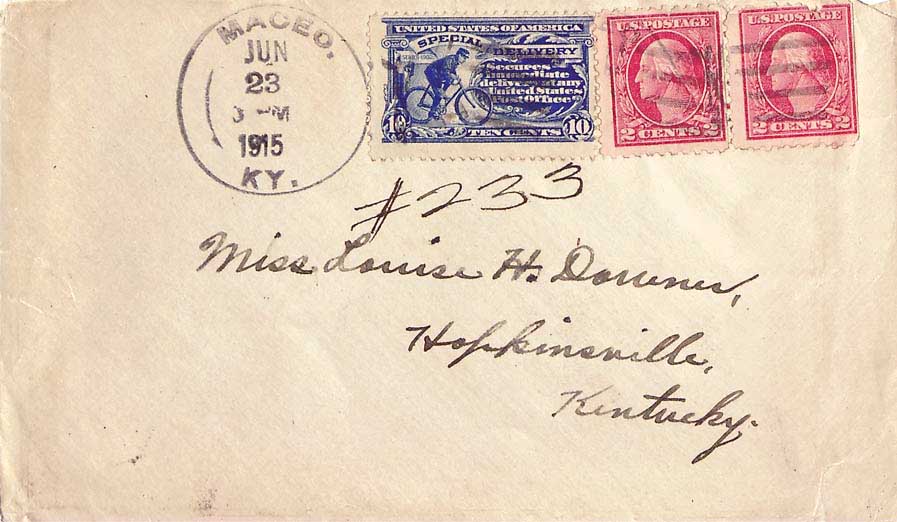 MACEO.
JUN
23
3 PM
1915
KY.
UNITED STATES OF AMERICA
SPECIAL DELIVERY
SERIES 1902
Secures
immediate
delivery at any
United States
Post Office
10 TEN CENTS 10
U.S. POSTAGE
2 CENTS 2
U.S. POSTAGE
2 CENTS 2
#233
Miss Louise H. Downer,
Hopkinsville,
Kentucky.